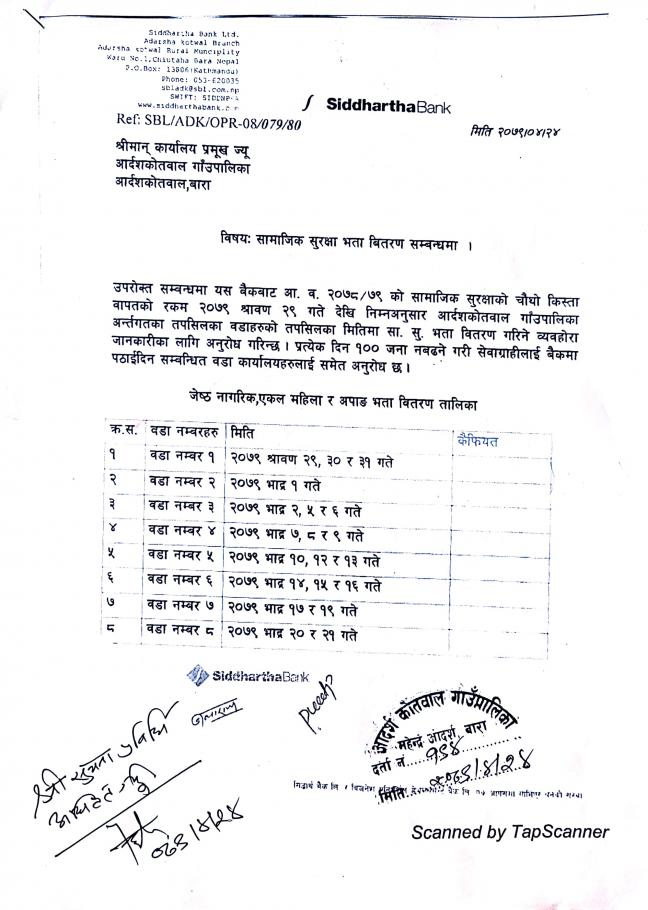 Siddhartha Bank Ltd.
Adarsha kotwal Branch
Adarsha kotwal Rural Muncipility
Ward No.1,Chiutaha Bara Nepal
P.O.Box: 13806(Kathmandu)
Phone: 053-620035
sbladk@sbl.com.np
SWIFT:
www.siddharthabank.com
SiddharthaBank
Ref: SBL/ADK/OPR-08/079/80
मिति २०७९।०४।२४
श्रीमान् कार्यालय प्रमूख ज्यू
आर्दशकोतवाल गाँउपालिका
आर्दशकोतवाल,बारा
विषयः सामाजिक सुरक्षा भता बितरण सम्बन्धमा ।
उपरोक्त सम्बन्धमा यस बैकबाट आ. व. २०७८/७९ को सामाजिक सुरक्षाको चौथो किस्ता
वापतको रकम २०७९ श्रावण २९ गते देखि निम्नअनुसार आर्दशकोतवाल गाँउपालिका
अर्न्तगतका तपसिलका वडाहरुको तपसिलका मितिमा सा. सु. भता वितरण गरिने व्यवहोरा
जानकारीका लागि अनुरोध गरिन्छ । प्रत्येक दिन १०० जना नबढने गरी सेवाग्राहीलाई बैकमा
पठाईदिन सम्बन्धित वडा कार्यालयहरुलाई समेत अनुरोध छ ।
जेष्ठ नागरिक,एकल महिला र अपाङ भता वितरण तालिका
क्र.स. वडा नम्बरहरु मिति कैफियत
१ वडा नम्बर १ २०७९ श्रावण २९, ३० र ३१ गते
२ वडा नम्बर २ २०७९ भाद्र १ गते
३ वडा नम्बर ३ २०७९ भाद्र २, ५ र ६ गते
४ वडा नम्बर ४ २०७९ भाद्र ७, ८ र ९ गते
५ वडा नम्बर ५ २०७९ भाद्र १०, १२ र १३ गते
६ वडा नम्बर ६ २०७९ भाद्र १४, १५ र १६ गते
७ वडा नम्बर ७ २०७९ भाद्र १७ र १९ गते
८ वडा नम्बर ८ २०७९ भाद्र २० र २१ गते
SiddharthaBank
आदर्श कोतवाल गाउँपालिका
महेन्द्र आदर्श, बारा
दर्ता नं.
मिति:
श्री सूचना प्रविधि
Scanned by TapScanner